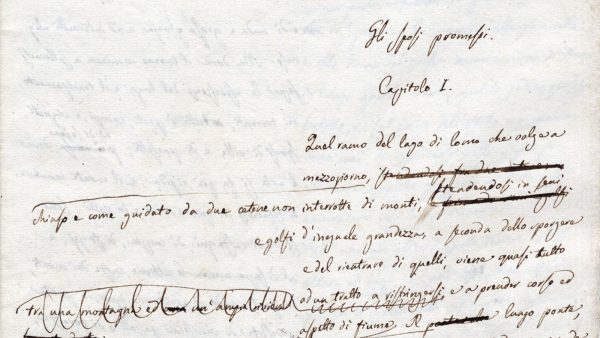 Gli sposi promessi.
Capitolo I.
Quel ramo del lago di Como che volge a
mezzogiorno,
stendendosi in seni
chiaso e come guidato da due catene non interrotte di monti,
e golfi d'ineguale grandezza, a seconda dello sporgere
e del rientrare di quelli, viene quasi tutto
tra una montagna ed un'ampia riviera
ad un tratto a ristringersi e a prender corso ed
aspetto di fiume. Il luogo ponte,